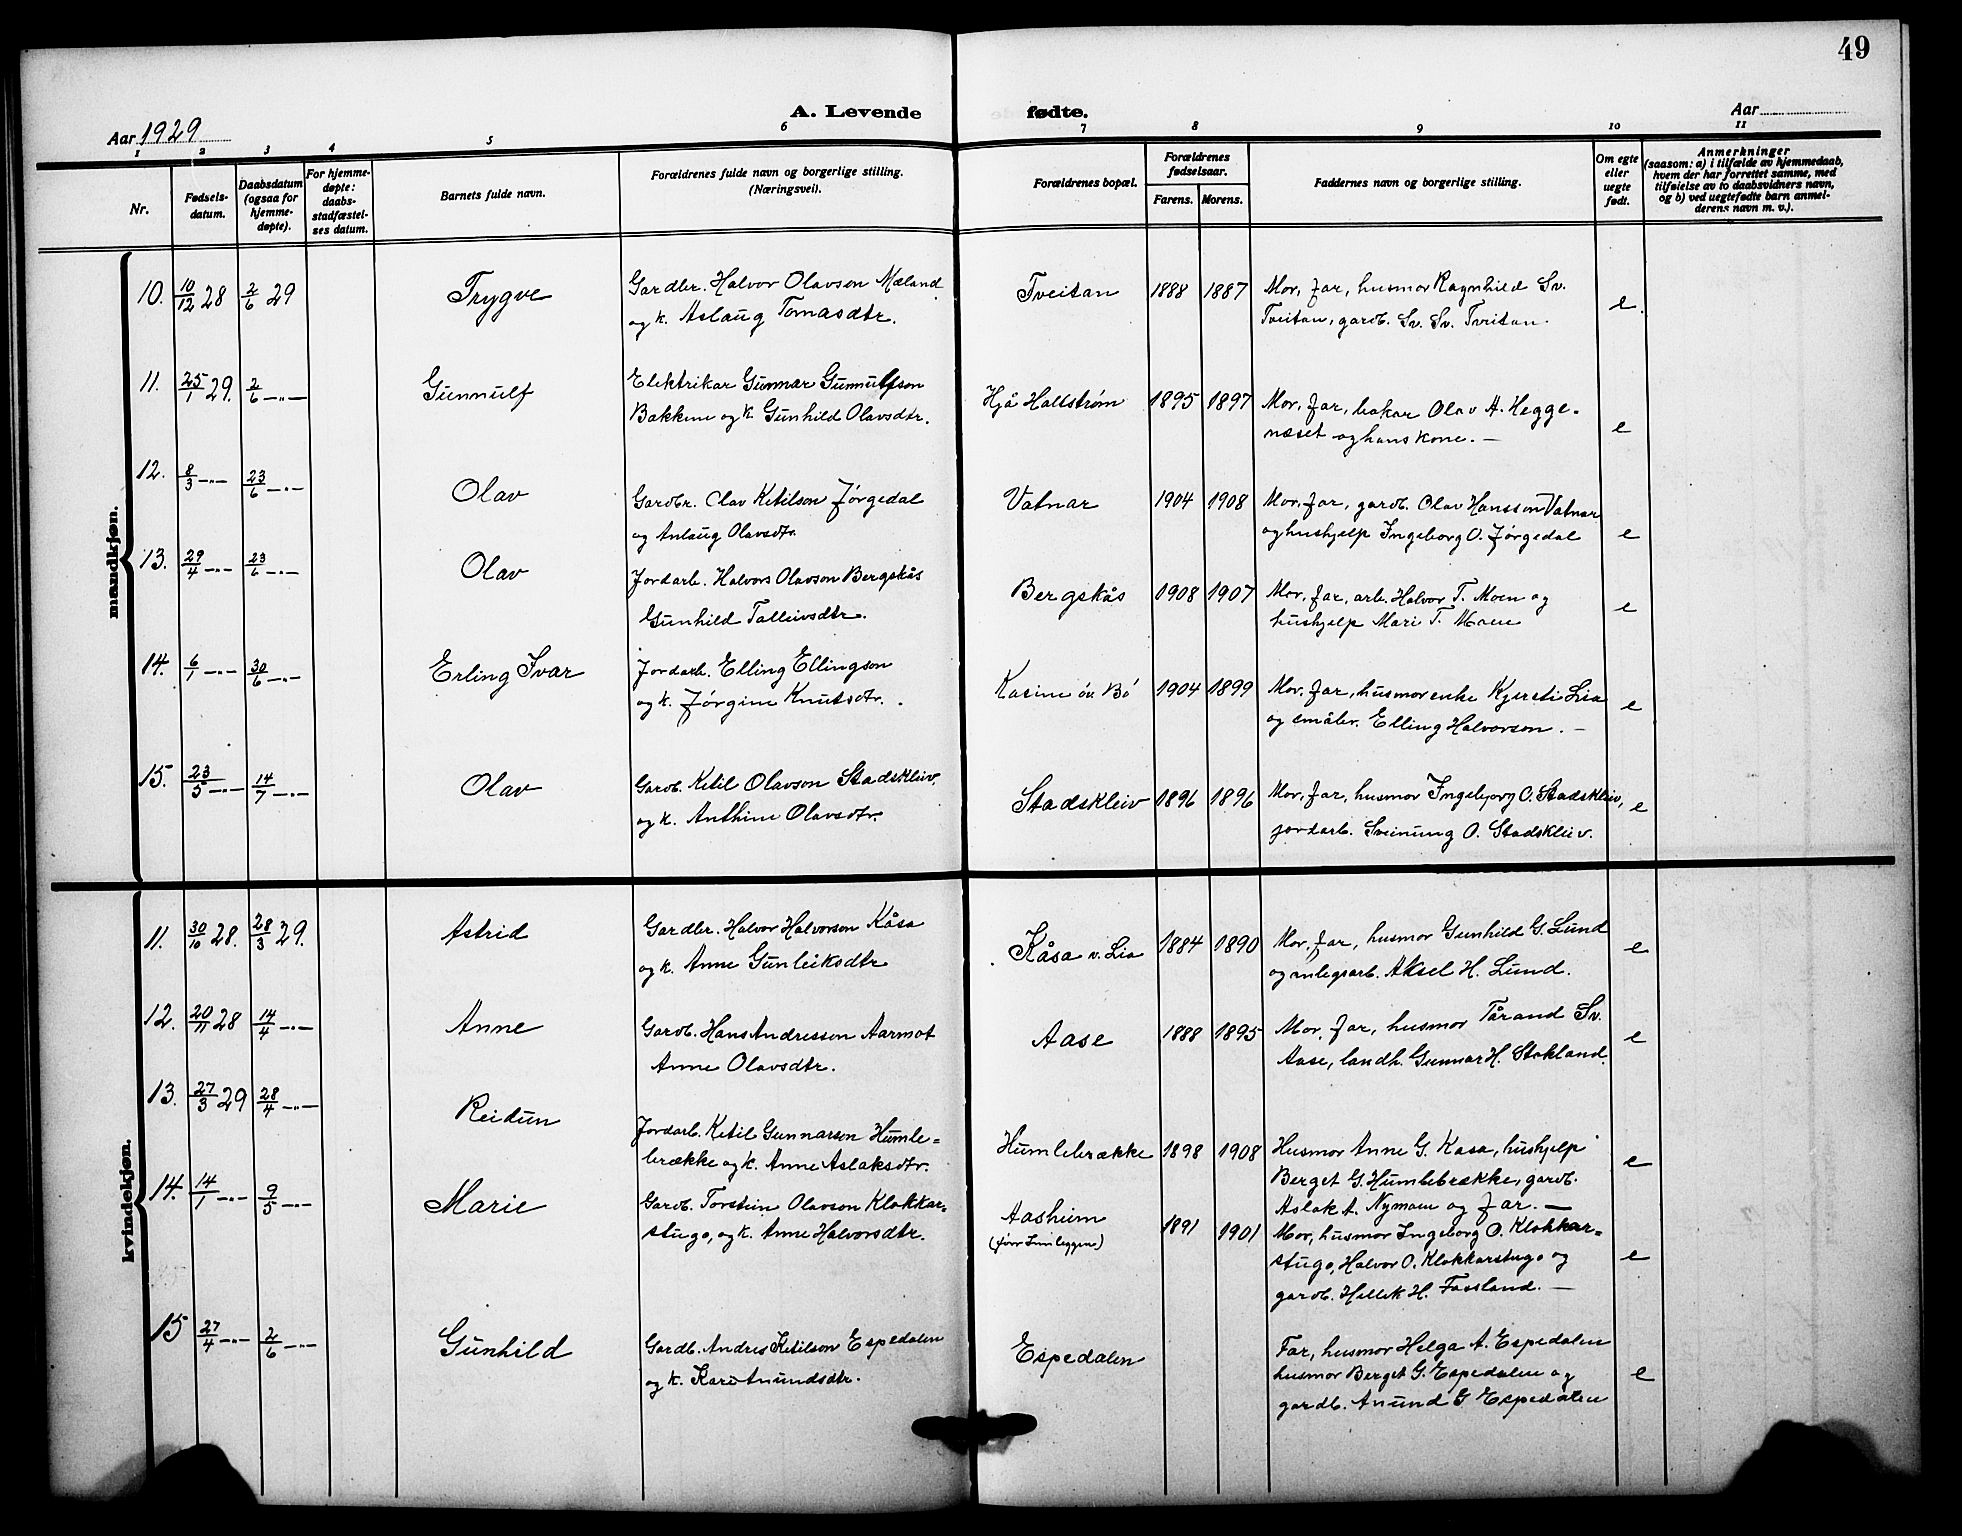 49
A. Levende fødte.
Aar 1929
Aar
1 2 3 4 5 6 7 8 9 10 11
Nr.
Fødsels-
datum.
Daabsdatum
(ogsaa for
hjemme-
døpte).
For hjemme-
døpte:
daabs-
stadfæstel-
ses datum.
Barnets fulde navn.
Forældrenes fulde navn og borgerlige stilling.
(Næringsvei).
Forældrenes bopæl.
Forældrenes
fødselsaar.
Farens. Morens.
Faddernes navn og borgerlige stilling.
Om egte
eller
uegte
født.
Anmerkninger
(saasom: a) i tilfælde av hjemmedaab,
hvem der har forrettet samme, med
tilføielse av to daabsvidners navn,
og b) ved uegtefødte barn anmel-
derens navn m. v.).
mandkjøn.
10. 10/12 28 2/6 29 Trygve Gardbr. Halvor Olavson Mæland Tveitan 1888 1887 Mor, far, husmor Ragnhild Sv. e.
og k. Aslaug Tomasdtr. Tveitan, gardb. Sv. Sv. Tveitan.
11. 25/1 29. 2/6 -"- Gunnulf Elektrikar Gunnar Gunnulfson Hjå Hallstrøm 1895 1897 Mor, far, bakar Olav H. Hegge- e
Bakkene og k. Gunhild Olavsdtr. næset og hans kone. —
12. 8/3 -"- 23/6 -"- Olav Gardbr. Olav Ketilson Jørgedal Vatnar 1904 1908 Mor, far, gardb. Olav Hansson Vatnar e
og Anlaug Olavsdtr. og hushjelp Ingeborg O. Jørgedal
13. 29/4 -"- 23/6 -"- Olav Jordarb. Halvors Olavson Bergskås Bergskås 1908 1907 Mor, far, arb. Halvor T. Moen og e
Gunhild Talleivsdtr. hushjelp Mari T. Moen
14. 6/1 -"- 30/6 -"- Erling Ivar Jordarb. Elling Ellingson Kasine öv Bö 1904 1899 Mor, far, husmorenke Kjersti Lia e
og k. Jørgine Knutsdtr. og småbr. Elling Halvorson. —
15. 23/5 -"- 14/7 -"- Olav Gardb. Ketil Olavson Stadskleiv, Stadskleiv 1896 1896 Mor, far, husmor Ingebjorg O. Stadskleiv, e
og k. Anthine Olavsdtr. jordarb. Sveinung O. Stadskleiv.
kvindekjøn.
11. 30/10 28. 28/3 29. Astrid Gardbr. Halvor Halvorson Kåsa Kåsa v. Lia 1884 1890 Mor, far, husmor Gunhild G. Lund e
og k. Anne Gunleiksdtr og anlegsarb. Aksel H. Lund.
12. 20/11 28 14/4 -"- Anne Gardb. Hans Andresson Aarmot Aase 1888 1895 Mor, far, husmor Tårand Sv. e
Anne Olavsdtr. Aase, landh. Gunnar H. Stokland.
13. 27/3 29 28/4 -"- Reidun Jordarb. Ketil Gunnarson Humle- Humlebrække 1898 1908 Husmor Anne G. Kasa, hushjelp e
brække og k. Anne Aslaksdtr. Berget G. Humlebrække, gardb.
Aslak A. Nymoen og far. —
14. 14/1 -"- 9/5 -"- Marie Gardb. Torstein Olavson Klokkar- Aasheim 1891 1901 Mor, husmor Ingeborg O. Klokkar- e
stugo, og k. Anne Halvorsdtr. stugo, Halvor O. Klokkarstugo og
gardb. Hellek H. Fossland. —
15 27/4 -"- 2/6 -"- Gunhild Gardb. Andres Ketilson Espedalen Espedalen Far, husmor Helga A. Espedalen e
og k. Kari Anundsdtr. husmor Berget G. Espedalen og
gardb. Anund G Espedalen